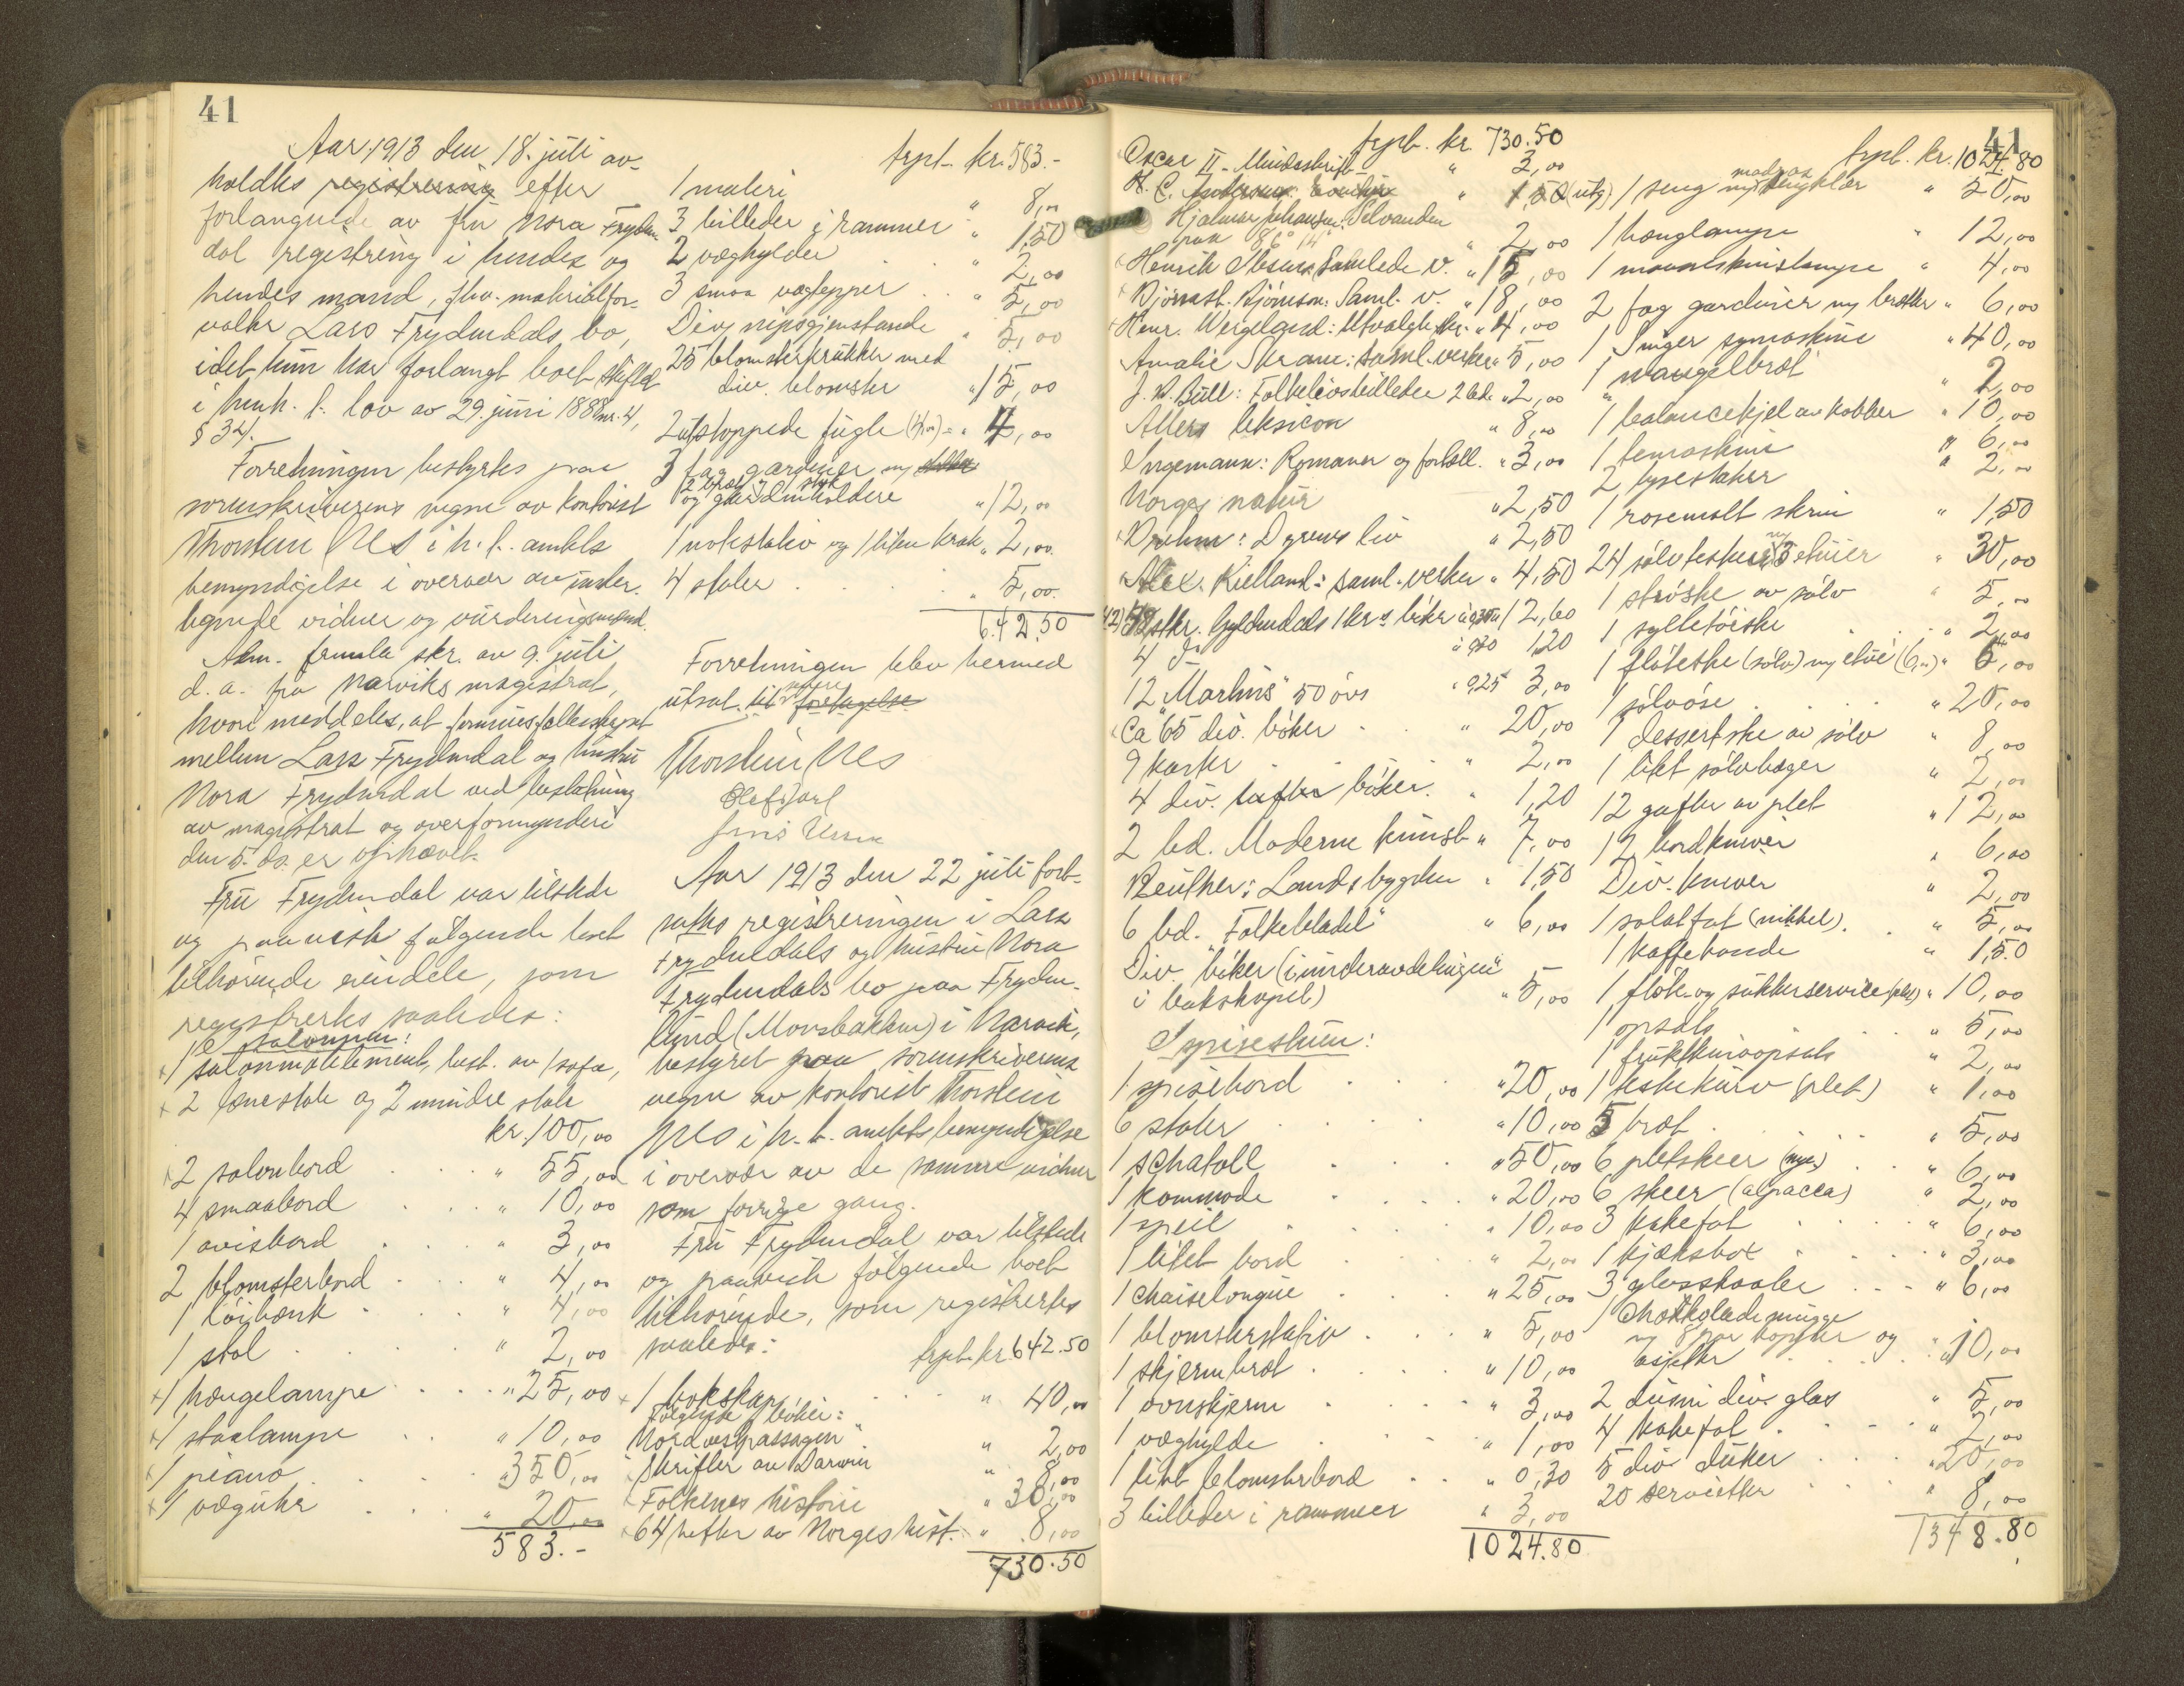 41
Aar 1913 den 18. juli av-
holdtes registrering efter
forlangende av fru Nora Fryden-
dal registrering i hendes og
hendes mand, fhv. materialfor-
valter Lars Frydendals bo,
idet hun har forlangt boet skiftet
i henh. t. lov av 29. juni 1888 nr. 4,
§ 34.
Forretningen bestyrtes paa
sorenskriverens vegne av kontorist
Thorstein Nes i h. t. amtets
bemyndigelse i overvær av under-
tegnede vidner og vurderingsmænd.
Adm. fremla skr. av 9. juli
d. a. fra Narviks magistrat,
hvori meddeles, at formuesfællesskapet
mellem Lars Frydendal og hustru
Nora Frydendal ved beslutning
av magistrat og overformynderi
den 5. ds. er ophævet.
Fru Frydendal var tilstede
og paaviste følgende boet
tilhørende eiendele, som
registrertes saaledes:
I salongen:
1 salonmøblement, best. av 1 sofa,
2 lænestole og 2 mindre stole
kr. 100,00
2 salonbord " 55,00
4 smaabord " 10,00
1 avisbord " 3,00
2 blomsterbord " 4,00
1 løibænk " 4,00
1 stol " 2,00
1 hængelampe " 25,00
1 staalampe " 10,00
1 piano " 350,00
1 væguhr " 20,00
583.-
trpt. kr. 583.-
1 maleri " 8,00
3 billeder i rammer " 1,50
2 væghylder " 2,00
3 smaa vægtepper " 5,00
Div. nipsgjenstande " 5,00
25 blomsterkrukker med
div. blomster " 15,00
2 utstoppede fugle (4,00) " 4,00
3 fag gardiner
og gardinholdere " 12,00
1 notestativ og 1 liten krak " 2,00
4 stoler " 5,00
642.50
Forretningen blev hermed
utsat til fortagelse
Thorstein Nes
Olaf Jarl
Aar 1913 den 22 juli fort-
sattes registreringen i Lars
Frydendals og hustru Nora
Frydendals bo paa Fryden-
lund (Movsbakken) i Narvik,
bestyret paa sorenskriverens
vegne av kontorist Thorstein
Nes i h. t. amtets bemyndigelse
i overvær av de samme vidner
som forrige gang.
Fru Frydendal var tilstede
og paaviste følgende boet
tilhørende, som registrertes
saaledes:
trpt. kr. 642.50
1 bokskap " 40,00
Følgende bøker:
"Nordvestpassagen" " 2,00
Skrifter av Darwin " 8,00
Folkenes historie " 30,00
64 hefter av Norges hist. " 8,00
730.50
41
trpt. kr. 730.50
Oscar II - Mindeskrift " 3,00
H. C. " 1,50 (utg)
Hjalmar Johansen: Selvanden
paa 86° 14' " 2,00
Henrik Ibsens Samlede v. " 15,00
Bjørnst. Bjørnson: Saml. v. " 18,00
Henr. Wergeland: Utvalgte skr. " 4,00
Amalie Skram: Saml. verker " 5,00
J. B. Bull: Folkelivsbilleder 2 bd. " 2,00
Allers leksicon " 8,00
Ingemann: Romaner og fortæll. " 3,00
Norges natur " 2,50
Brehm: Dyrenes liv " 2,50
Alex. Kielland: Saml. verker " 4,50
42) stkr. Gyldendals 1 kr.s bøker à 0,30 12,60
4 do à 0,30 1,20
12 "Martins" 50 øres " 0,25 3,00
Ca 65 div. bøker " 20,00
9 karter " 2,00
4 div. bøker " 1,20
2 bd. Moderne kunst " 7,00
Reuther: Landsbygden " 1,50
6 bd. "Folkebladet" " 6,00
Div. bøker (i underavdelingen
i bokskapet) " 5,00
Spisestuen:
1 spisebord " 20,00
6 stoler " 10,00
1 schatoll " 50,00
1 kommode " 20,00
1 speil " 10,00
1 litet bord " 2,00
1 chaiselongue " 25,00
1 blomsterstativ " 5,00
1 skjermbræt " 10,00
1 ovnskjerm " 3,00
1 væghylde " 1,00
1 litet blomsterbord " 0,30
3 billeder i rammer " 3,00
1024.80
trpt. kr. 1024.80
1 seng m/ madras sengklær " 20,00
1 hænglampe " 12,00
1 maaneskinslampe " 4,00
2 fag gardiner m/ bretter " 6,00
1 Singer symaskine " 40,00
1 mangelbræt " 2,00
1 balancekjel av kobber " 10,00
1 temaskine " 6,00
2 lysestaker " 2,00
1 rosemalt skrin " 1,50
24 sølvteskeer m/ 3 etuier " 30,00
1 strøske av sølv " 5,00
1 syltetøiske " 2,00
1 fløteske (sølv) m/ etui (6,00) " 6,00
1 sølvøse " 20,00
7 dessertske av sølv " 8,00
1 litet sølvbæger " 2,00
12 gafler av plet " 12,00
12 bordkniver " 6,00
Div. kniver " 2,00
1 salatfat (nikkel) " 5,00
1 kaffekande " 1,50
1 fløte- og sukkerservice (plet) " 10,00
1 opsats " 5,00
1 fruktknivopsats " 2,00
1 kakekurv (plet) " 1,00
5 bræt " 5,00
6 pletskeer (nye) " 6,00
6 skeer (alpacca) " 2,00
3 kakefat " 6,00
1 kjæksbox " 3,00
3 glasskaaler " 6,00
1 chokolademugge
m/ 8 par kopper og
asjetter " 10,00
2 dusin div. glas " 5,00
4 kakefat " 2,00
5 div. duker " 20,00
20 servietter " 8,00
1348.80